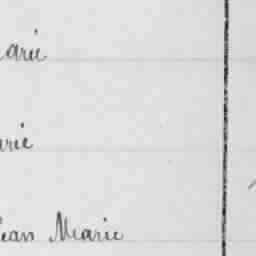 arie
arie
Jean Marie